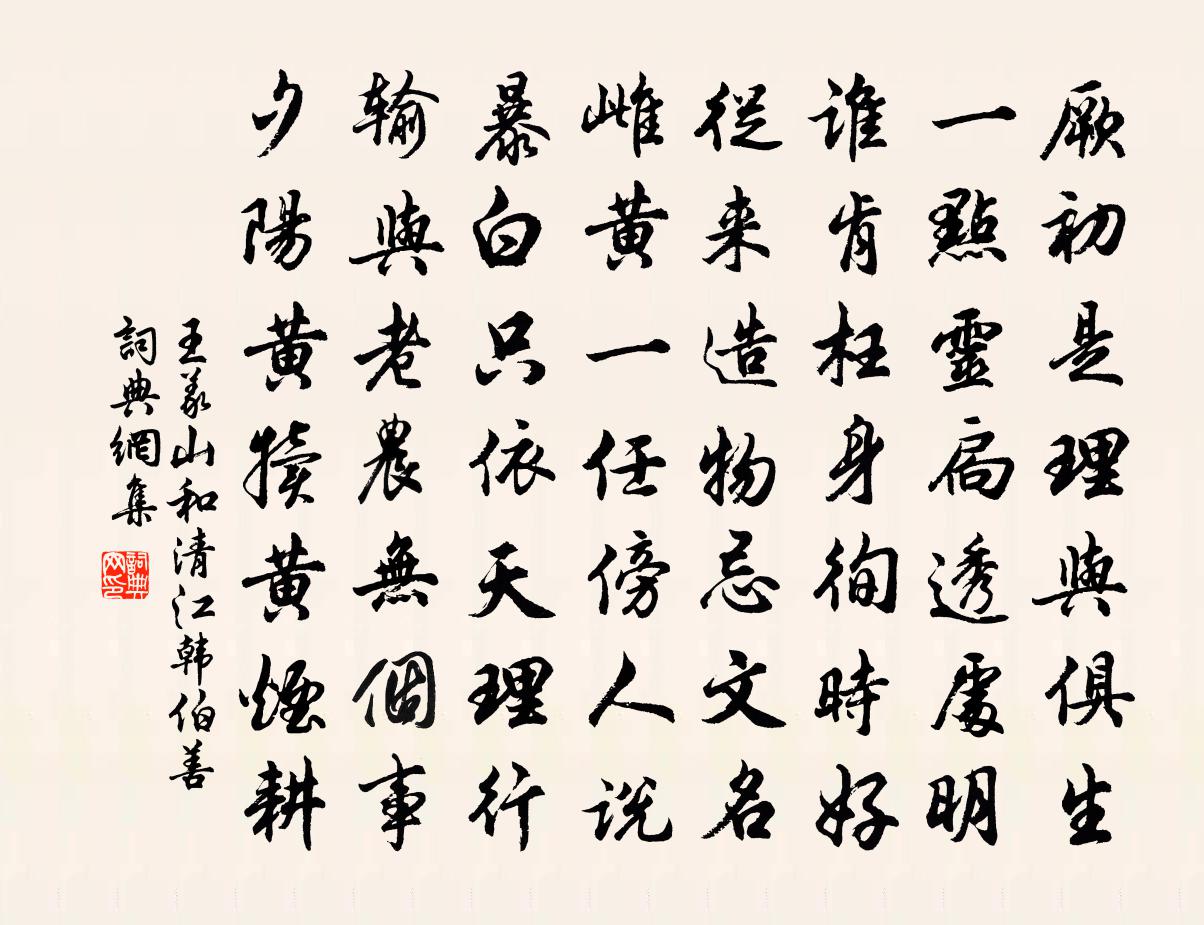 厥初是理與俱生
一點靈扃透處明
谁肯枉身徇時好
從来造物忌文名
雌黄一任傍人説
暴白只依天理行
輸與老農無個事
夕陽黄犢黄煙耕
王義山和清江韩伯善
詞典網集
詞典网印